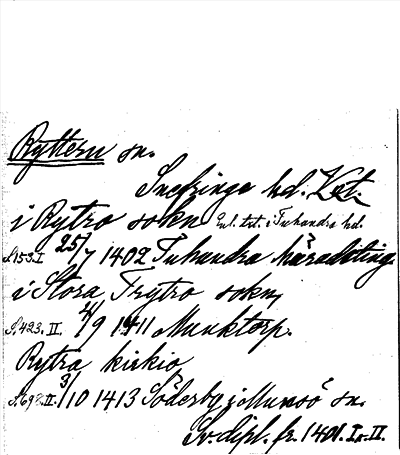 Ryttern sn.
Snefringe hd. Vstm.
i Rytro sokn Enl. txt. i Tuhundra hd.
S.153.I 25/7 1402 Tuhundra häradsting
i Stora Frytro sokn,
S.423.II. 4/9 1411 Munktorp.
Rytra kirkio,
S.698.II. 3/10 1413 Söderby i Munsö sn.
Sv. dipl. fr. 1401. I o. II.